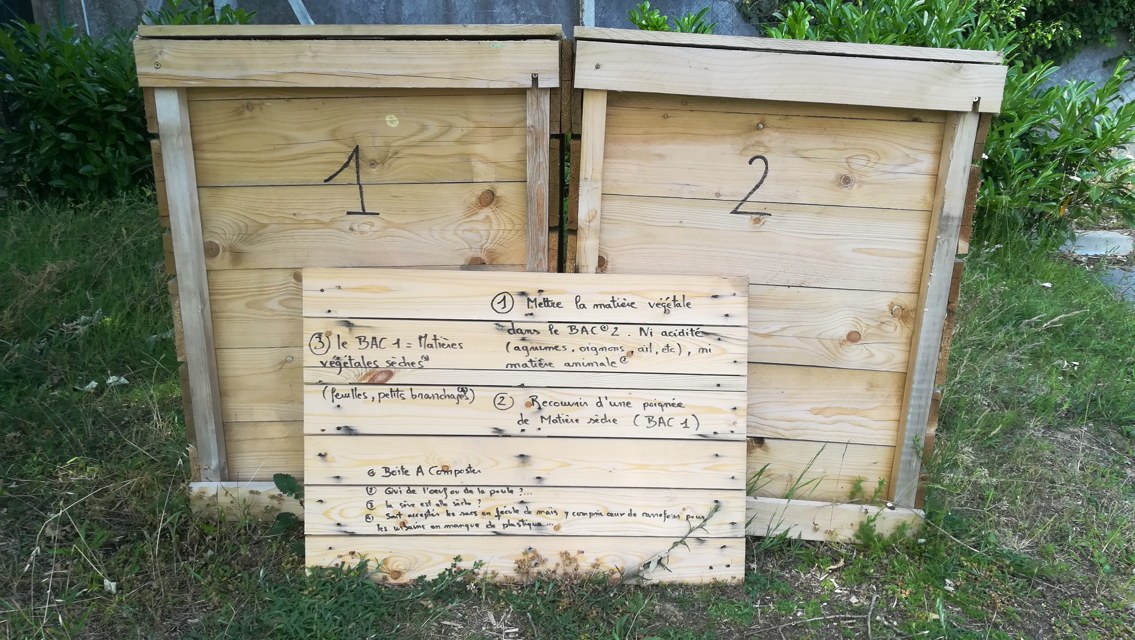 1
2
① Mettre la matière végétale
dans le BAC 2. Ni acidité
(agrumes, oignons, ail, etc), ni
matière animale
③ le BAC 1 = Matières
végétales sèches
(feuilles, petits branchages)
② Recouvrir d'une poignée
de Matière sèche (BAC 1)
Boite A Composter
② Qui de l'oeuf ou de la poule ?...
③ la sève est elle sèche ?
④ Sait accepter les sacs en fécule de maïs y compris ceux de carrefour pour
les urbains en manque de plastique...